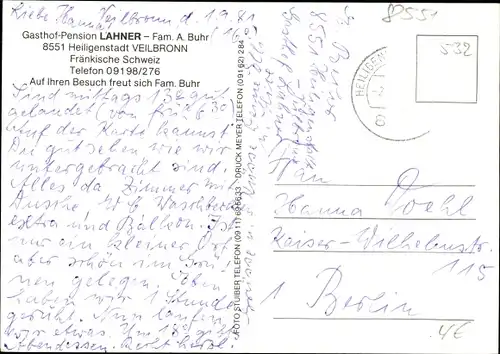 Liebe Hanna! Veilbronn d. 1.9.81
Gasthof-Pension LAHNER – Fam. A. Buhr
8551 Heiligenstadt VEILBRONN
Fränkische Schweiz
Telefon 09198/276
Auf Ihren Besuch freut sich Fam. Buhr
Sind mittags 13 gut
gelandet (von früh 6 30)
Auf der Karte kannst
Du gut sehen wie wir
untergebracht sind.
Alles da Zimmer mit
Dusche W C Waschbecken
extra und Balkon. Ist
nur ein kleiner Ort
aber schön im Grü-
nen gelegen. Eben
haben wir 1 Stunde
geruht. Nun laufen
wir etwas. Um 18
Abendessen. Recht herzl.
FOTO STUBER TELEFON (0911) 696633 DRUCK MEYER TELEFON (09162) 284
8551
532
HEILIGEN
8551 Heiligenstadt
Frau
Hanna
Kaiser-Wilhelmstr.
115
1 Berlin
4€